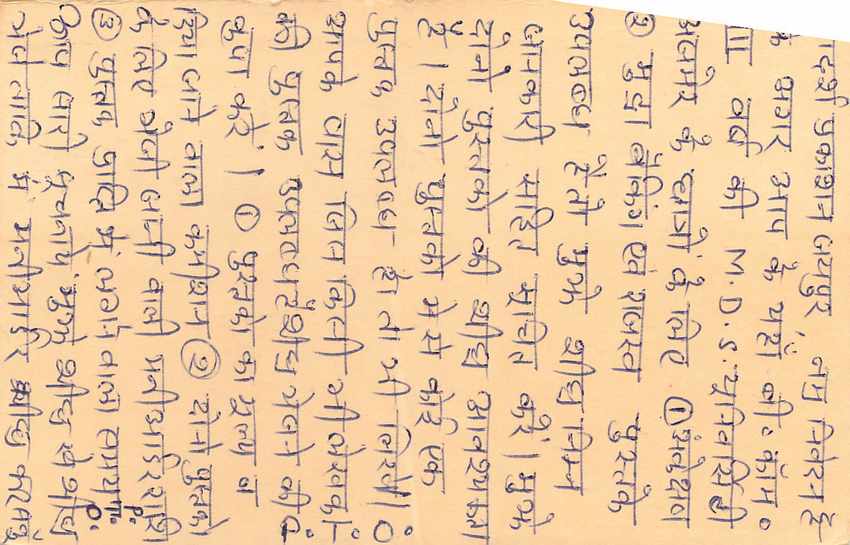 आदर्श प्रकाशन जयपुर, नम्र निवेदन है
कि अगर आप के यहाँ बी॰कॉम॰
III वर्ष की M.D.S. यूनिवर्सिटी
अजमेर के छात्रों के लिए ①
② मुद्रा बैंकिंग एवं राजस्व पुस्तके
उपलब्ध है तो मुझे शीघ्र निम्न
जानकारी सहित सूचित करें। मुझे
दोनो पुस्तको की शीघ्र आवश्यकता
है। दोनो पुस्तको मे से कोई एक
पुस्तक उपलब्ध हो तो भी लिखें।
आपके पास जिस किसी भी लेखक
की पुस्तक उपलब्ध है शीघ्र भेजने की
कृपा करें। ① पुस्तको का मूल्य व
दिया जाने वाला कमीशन ② दोनो पुस्तको
के लिए भेजी जाने वाली मनीआर्डर राशि
③ पुस्तक प्राप्ति में लगने वाला समय
कृपया सारी सूचनाये मुझे शीघ्र से शीघ्र
भेजे ताकि मैं मनीआर्डर शीघ्र कर सकूं